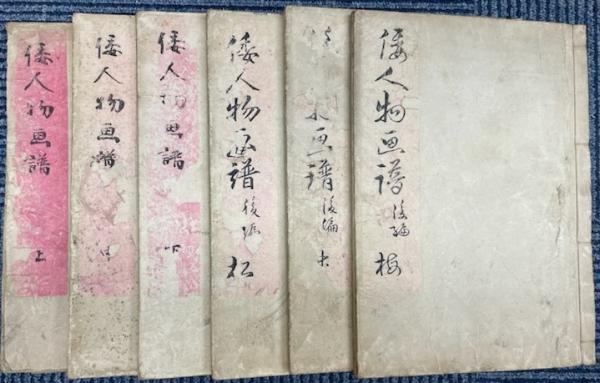 倭人物画譜 上
倭人物画譜 中
倭人物画譜 下
倭人物画譜 後編 松
画譜 後編 竹
倭人物画譜 後編 梅